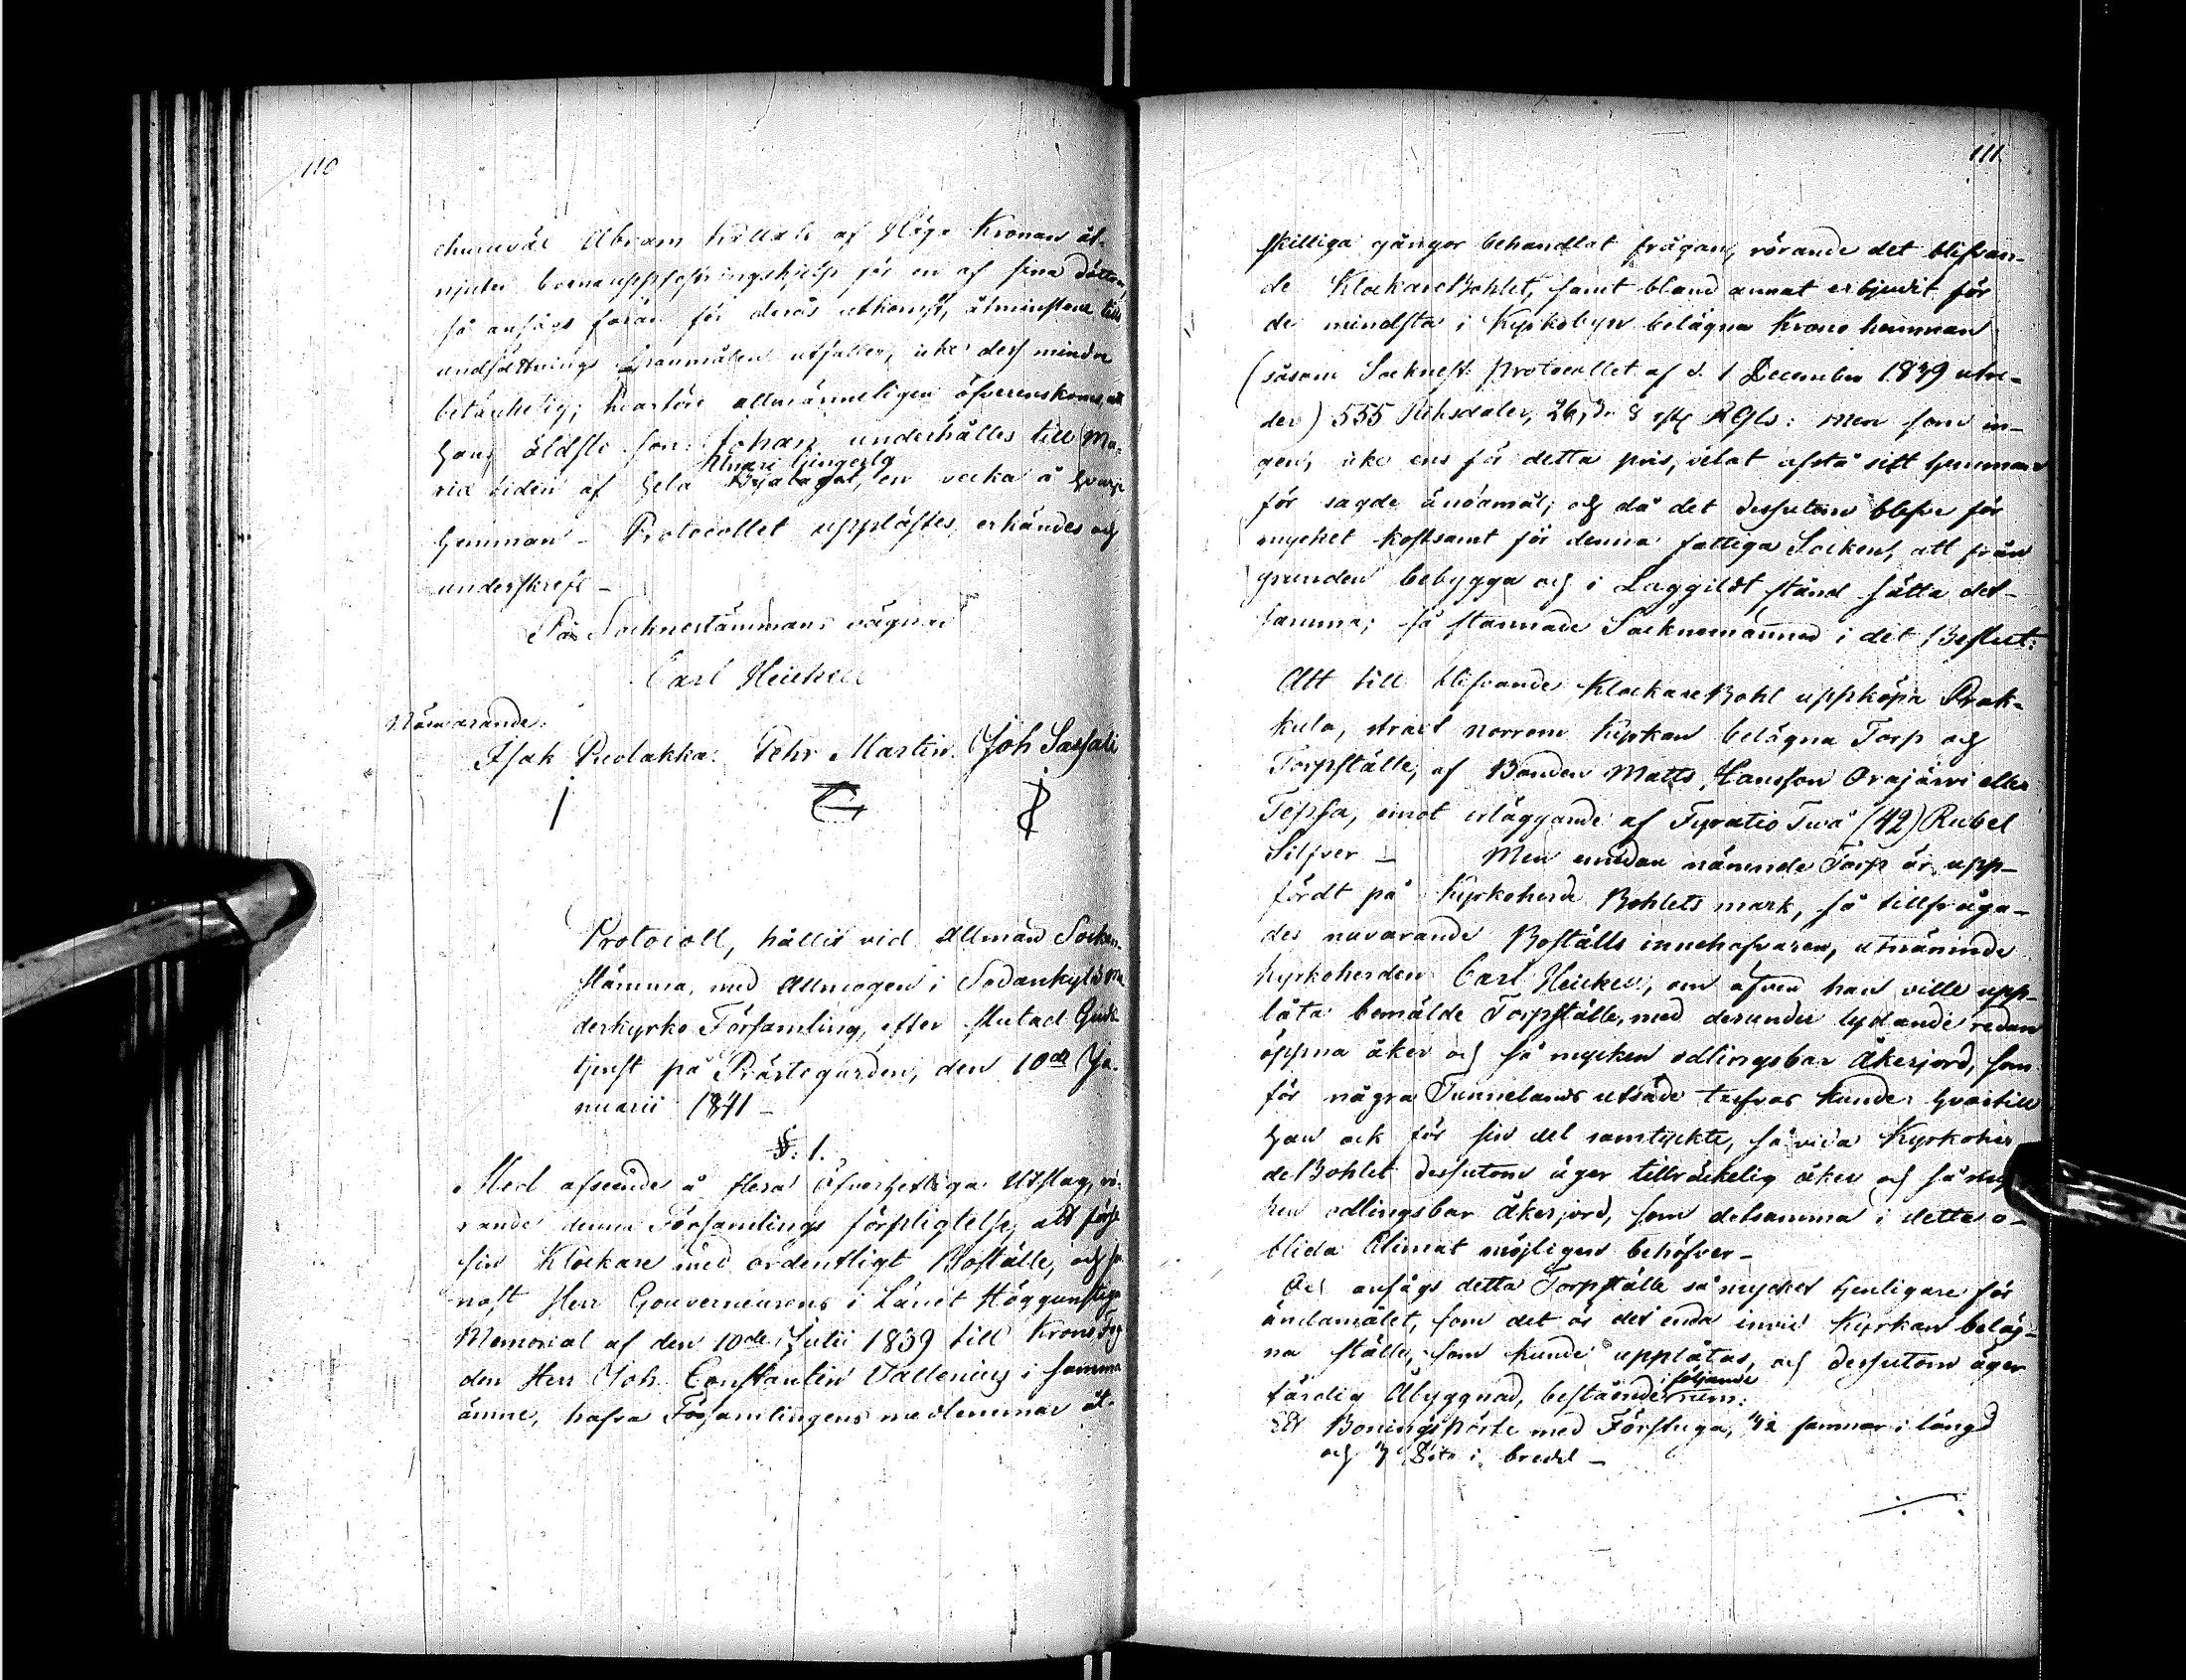 110
churuväl Abram Kallale af Höga Kronan åt-
njuter barnauppfostringshjelp för en af sina döttrar,
så ansågs faran för deras utkomst, åtminstone tills
undsättnings spanmålen utfaller, icke dess mindre
betänkelig; hvarföre allmänneligen öfverenskoms, att
hans äldste son Johan underhålles till Ma-
ria tiden af hela Byalaget, en vecka å hvarje
hemman – Protocollet upplästes, erkändes och
underskrefs –
På Socknestämmans vägnar
Carl Heickell
Närvarande:
Isak Puolakka: Pehr Martin: Joh Sassali
Protocoll, hållit vid Allmän Socken-
stämma, med Allmogen i Sodankylä Mo-
derkyrko Församling, efter slutad Guds-
tjenst på Prästegården, den 10de Ja-
nuarii 1841 –
§. 1.
Med afseende å flera Öfverhetliga Utslag, rö-
rande denna Församlings förpligtelse, att förse
sin Klockare med ordentligt Boställe, och se-
nast Herr Gouverneurens i Länet Höggunstiga
Memorial af den 10de Julii 1839 till Krono Fog
den Herr Joh. Constantin Vallenius i samma
ämne, hafva Församlingens medlemmar åt-
111.
skilliga gånger behandlat frågan, rörande det blifvan-
de KlockareBohlet, samt bland annat erbjudit för
de mindsta i Kyrkobyn belägna Krono hemman
(såsom Socknest. Protocollet af d. 1 December 1839 utvi-
der) 555 Riksdaler, 26, s. 8 rst RGls: Men som in-
gen, icke ens för detta pris, velat afstå sitt hemman
för sagde ändamål; och då det dessutom blefve för
mycket kostsamt för denna fattiga Socken, att från
grunden bebygga och i Laggildt stånd sätta det-
samma; så stannade Socknemännen i det Beslut:
Att till blifvande KlockareBohl uppköpa Prak-
kula, strax norrom Kyrkan belägna Torp och
Torpställe, af Bonden Matts Hansson Orajärvi eller
Tepsa, emot erläggande af Fyratio Två (42) Rubel
Silfver – Men emedan nämnde Torp är upp-
fördt på Kyrkoherde Bohlets mark, så tillfråga-
des nuvarande Boställs innehafvaren, utnämnde
Kyrkoherden Carl Heickell, om äfven han ville upp-
låta bemälde Torpställe, med derunder lydande redan
öppna åker och så mycken odlingsbar Åkerjord, som
för några Tunnelands utsäde tarfvas kunde: hvartill
han ock för sin del samtyckte, så vida Kyrkoher-
deBohlet dessutom äger tillräckelig åker och så myc
ken odlingsbar Åkerjord, som detsamma i detta o-
blida Climat möjligen behöfver –
Och ansågs detta Torpställe så mycket tjenligare för
ändamålet, som det är det enda invid Kyrkan beläg-
na ställe, som kunde upplåtas, och dessutom äger
färdig Åbyggnad, bestående i följande rum:
Ett Boningspörte med Förstuga, 4½ famnar i längd
och 3 dito i bredd –